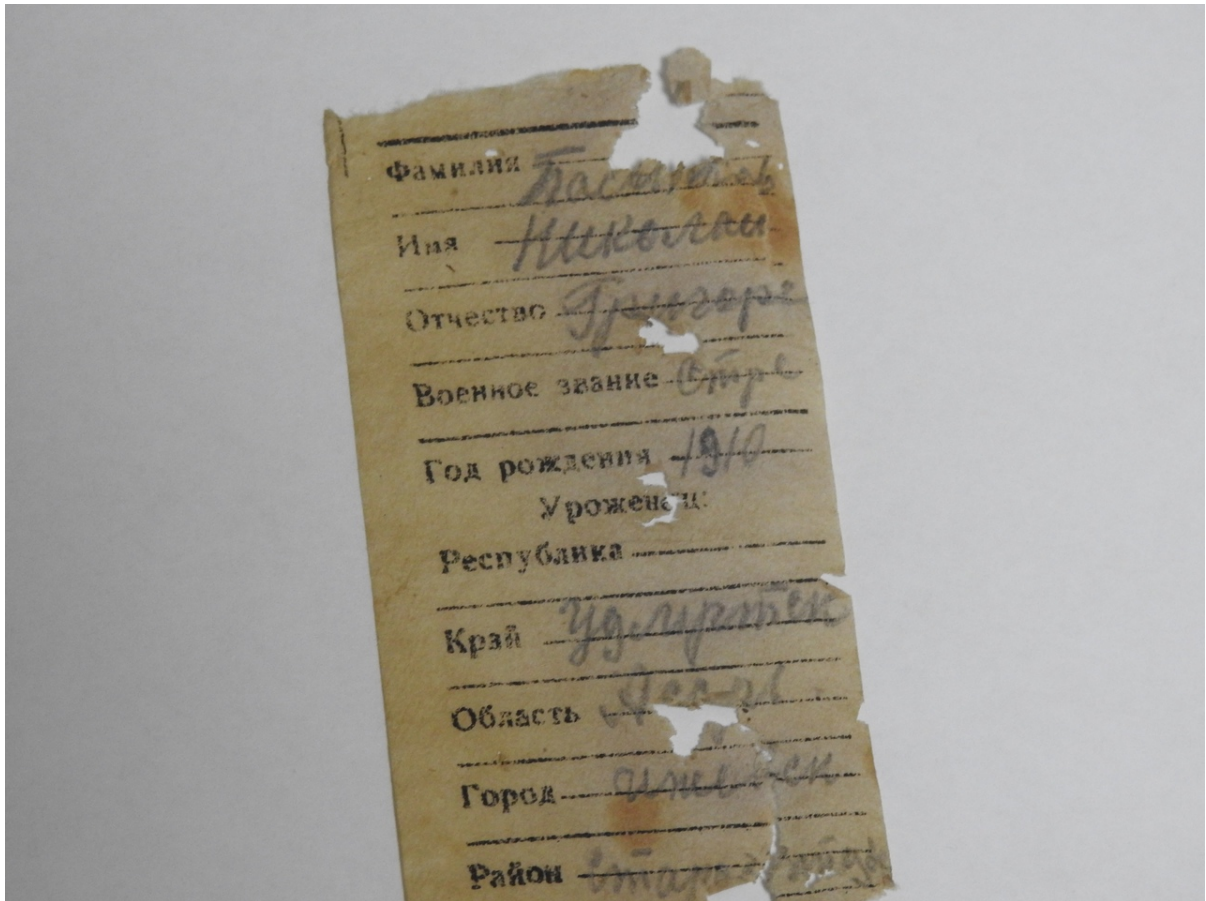 Фамилия
Имя Николай
Отчество Григорье
Военное звание Стре
Год рождения 1910
Уроженец:
Республика
Край Удмуртск
Область
Город Ижевск
Район